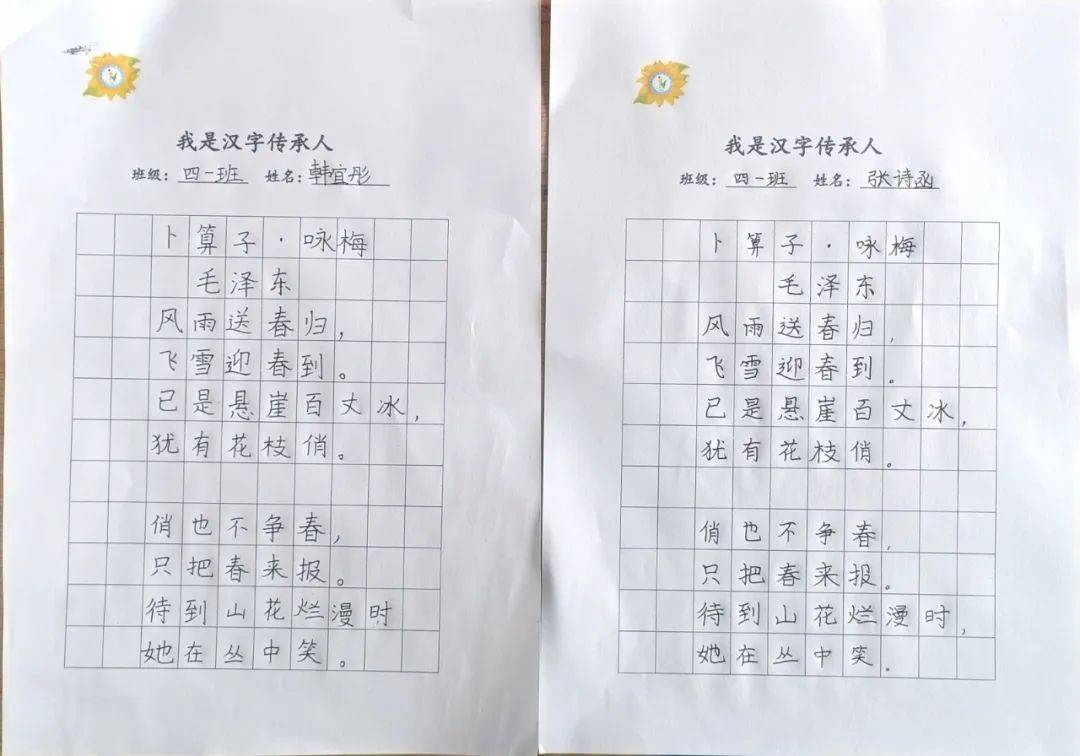 我是汉字传承人
班级：四一班 姓名：韩宜彤
卜算子·咏梅
毛泽东
风雨送春归，
飞雪迎春到。
已是悬崖百丈冰，
犹有花枝俏。
俏也不争春，
只把春来报。
待到山花烂漫时
她在丛中笑。
我是汉字传承人
班级：四一班 姓名：张诗函
卜算子·咏梅
毛泽东
风雨送春归，
飞雪迎春到。
已是悬崖百丈冰，
犹有花枝俏。
俏也不争春，
只把春来报。
待到山花烂漫时，
她在丛中笑。